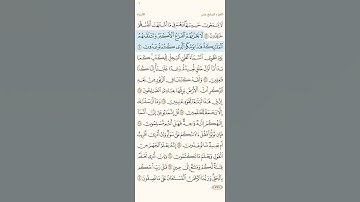 الجزء السابع عشر الأنبياء
لَا يَسْمَعُونَ حَسِيسَهَا وَهُمْ فِي مَا ٱشْتَهَتْ أَنفُسُهُمْ
خَٰلِدُونَ لَا يَحْزُنُهُمُ ٱلْفَزَعُ ٱلْأَكْبَرُ وَتَتَلَقَّىٰهُمُ
ٱلْمَلَٰٓئِكَةُ هَٰذَا يَوْمُكُمُ ٱلَّذِي كُنتُمْ تُوعَدُونَ
يَوْمَ نَطْوِي ٱلسَّمَآءَ كَطَيِّ ٱلسِّجِلِّ لِلْكُتُبِ كَمَا
بَدَأْنَآ أَوَّلَ خَلْقٍ نُّعِيدُهُۥ وَعْدًا عَلَيْنَآ إِنَّا كُنَّا
فَٰعِلِينَ وَلَقَدْ كَتَبْنَا فِي ٱلزَّبُورِ مِنۢ بَعْدِ
ٱلذِّكْرِ أَنَّ ٱلْأَرْضَ يَرِثُهَا عِبَادِيَ ٱلصَّٰلِحُونَ
إِنَّ فِي هَٰذَا لَبَلَٰغًا لِّقَوْمٍ عَٰبِدِينَ وَمَآ أَرْسَلْنَٰكَ
إِلَّا رَحْمَةً لِّلْعَٰلَمِينَ قُلْ إِنَّمَا يُوحَىٰٓ إِلَيَّ أَنَّمَآ
إِلَٰهُكُمْ إِلَٰهٌ وَٰحِدٌ فَهَلْ أَنتُم مُّسْلِمُونَ
فَإِن تَوَلَّوْا۟ فَقُلْ ءَاذَنتُكُمْ عَلَىٰ سَوَآءٍ وَإِنْ أَدْرِيٓ أَقَرِيبٌ
أَم بَعِيدٌ مَّا تُوعَدُونَ إِنَّهُۥ يَعْلَمُ ٱلْجَهْرَ مِنَ
ٱلْقَوْلِ وَيَعْلَمُ مَا تَكْتُمُونَ وَإِنْ أَدْرِي لَعَلَّهُۥ
فِتْنَةٌ لَّكُمْ وَمَتَٰعٌ إِلَىٰ حِينٍ قَٰلَ رَبِّ ٱحْكُم
بِٱلْحَقِّ وَرَبُّنَا ٱلرَّحْمَٰنُ ٱلْمُسْتَعَانُ عَلَىٰ مَا تَصِفُونَ